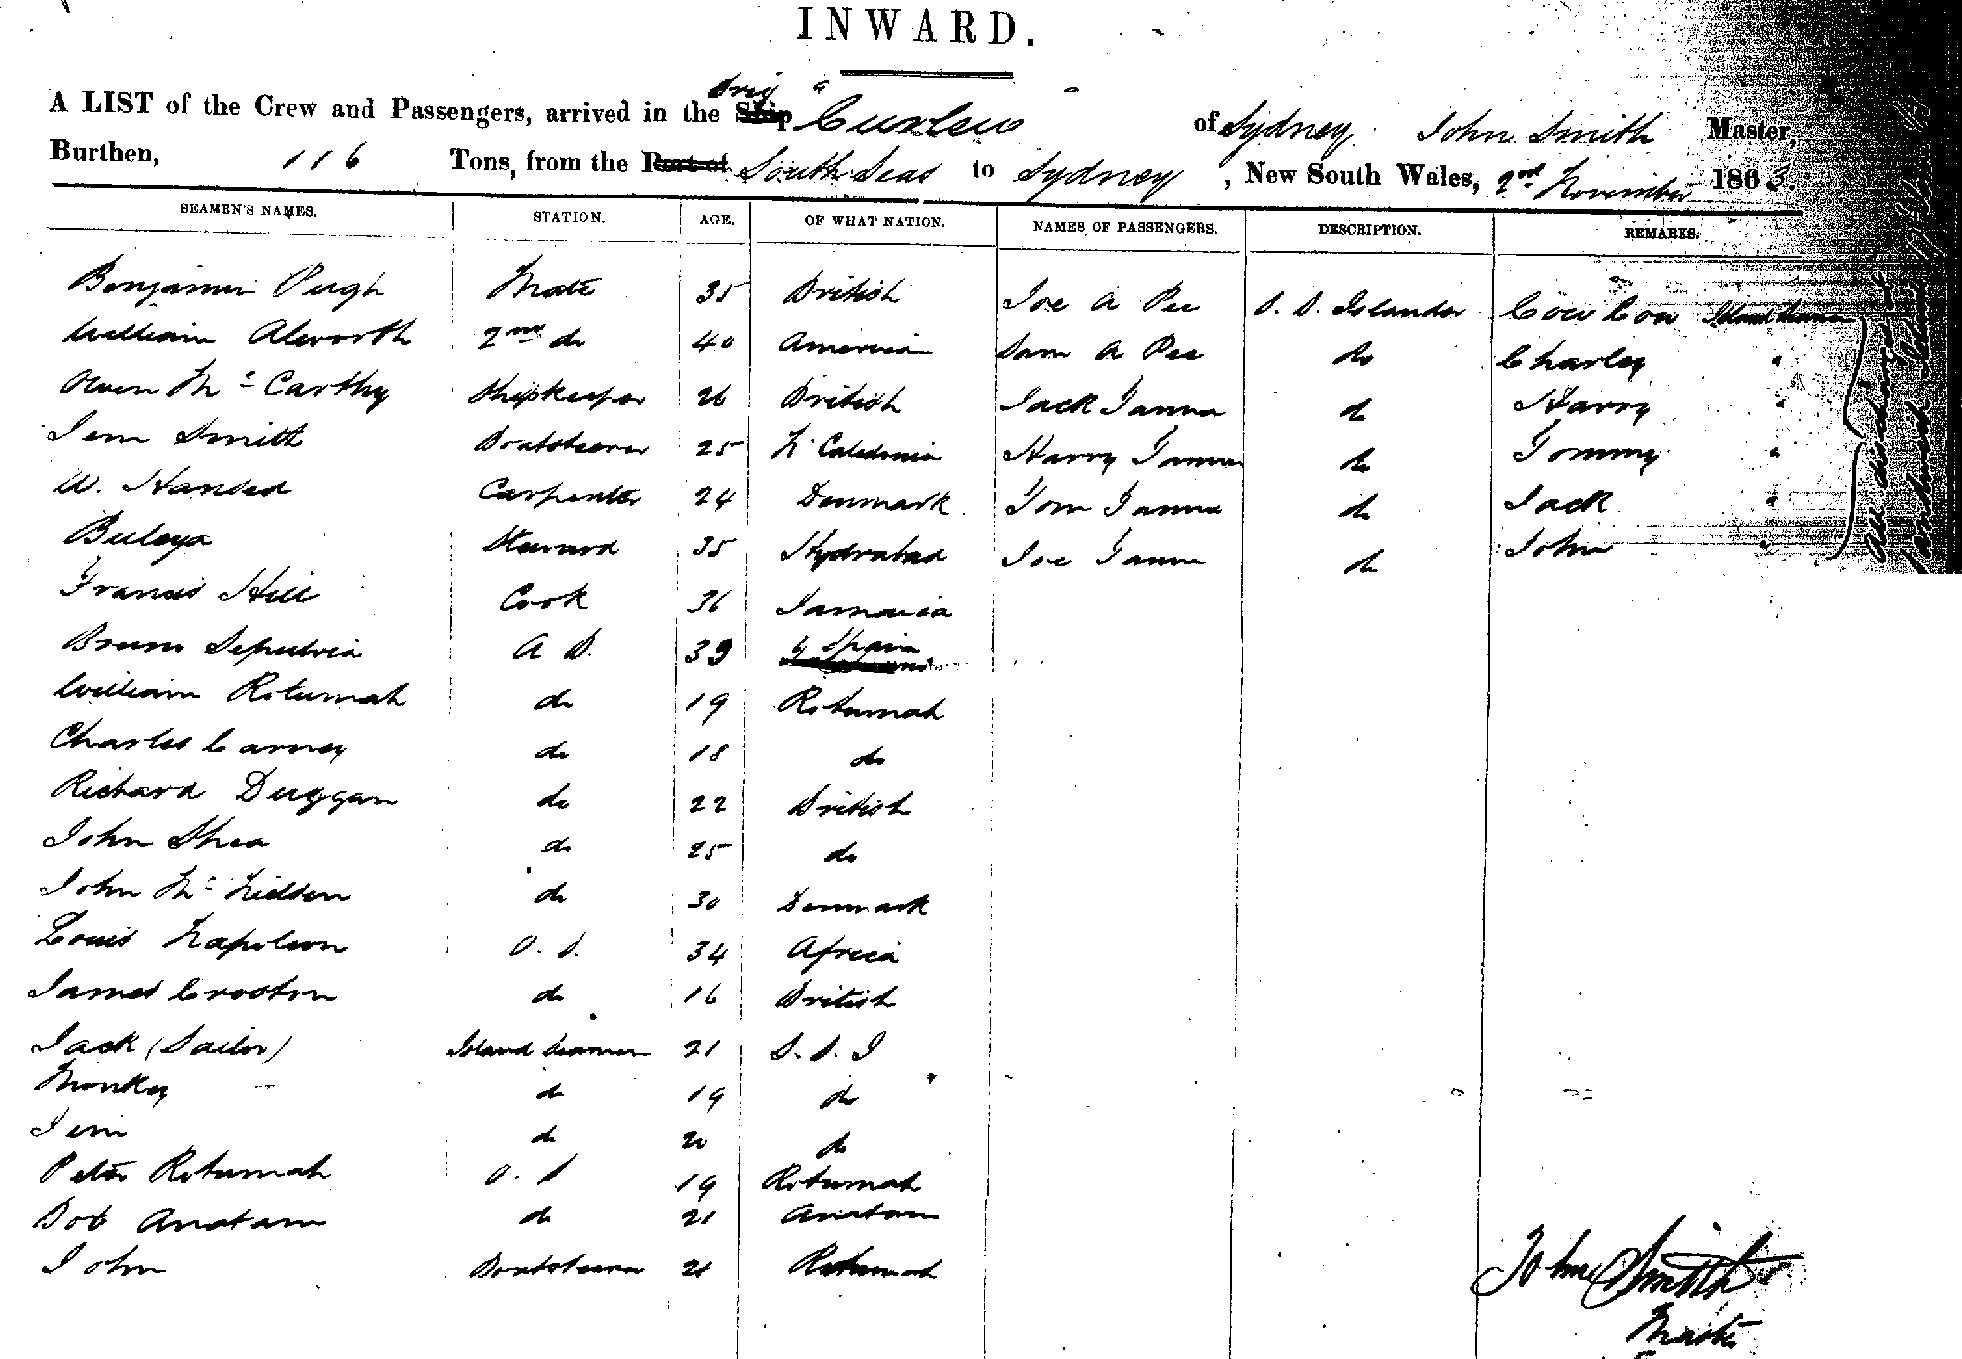 INWARD.
A LIST of the Crew and Passengers, arrived in the Ship Brig "Curlew" of Sydney John Smith Master,
Burthen, 116 Tons, from the Port of South Seas to Sydney, New South Wales, 2nd November 1863.
SEAMEN'S NAMES. STATION. AGE. OF WHAT NATION. NAMES OF PASSENGERS. DESCRIPTION. REMARKS.
Benjamin Pugh Mate 35 British Joe A Pee S. S. Islander Cow Cow Island Seaman
William Alworth 2nd do 40 America Sam A Pee do Charley "
Owen Mc Carthy Shipkeeper 26 British Jack Tanna do Harry "
Jem Smith Boatsteerer 25 N. Caledonia Harry Tanna do Tommy "
W. Hansed Carpenter 24 Denmark Tom Tanna do Jack "
Buleya Steward 35 Hydrabad Joe Tanna do John "
Francis Hill Cook 36 Jamaica
Bruno A B. 39 Spain
William Rotumah do 19 Rotumah
Charles Carney do 18 do
Richard Duggan do 22 British
John Shea do 25 do
John Mc Neilson do 30 Denmark
Louis Napoleon O. S. 34 Africa
James Croston do 16 British
Jack (Sailor) Island Seaman 21 S. S. I
Monkey do 19 do
Jem do 20 do
Peter Rotumah O. S 19 Rotumah
Bob Anatam do 21 Anatam
John Boatsteerer 21 Rotumah
All discharged
John Smith
Master